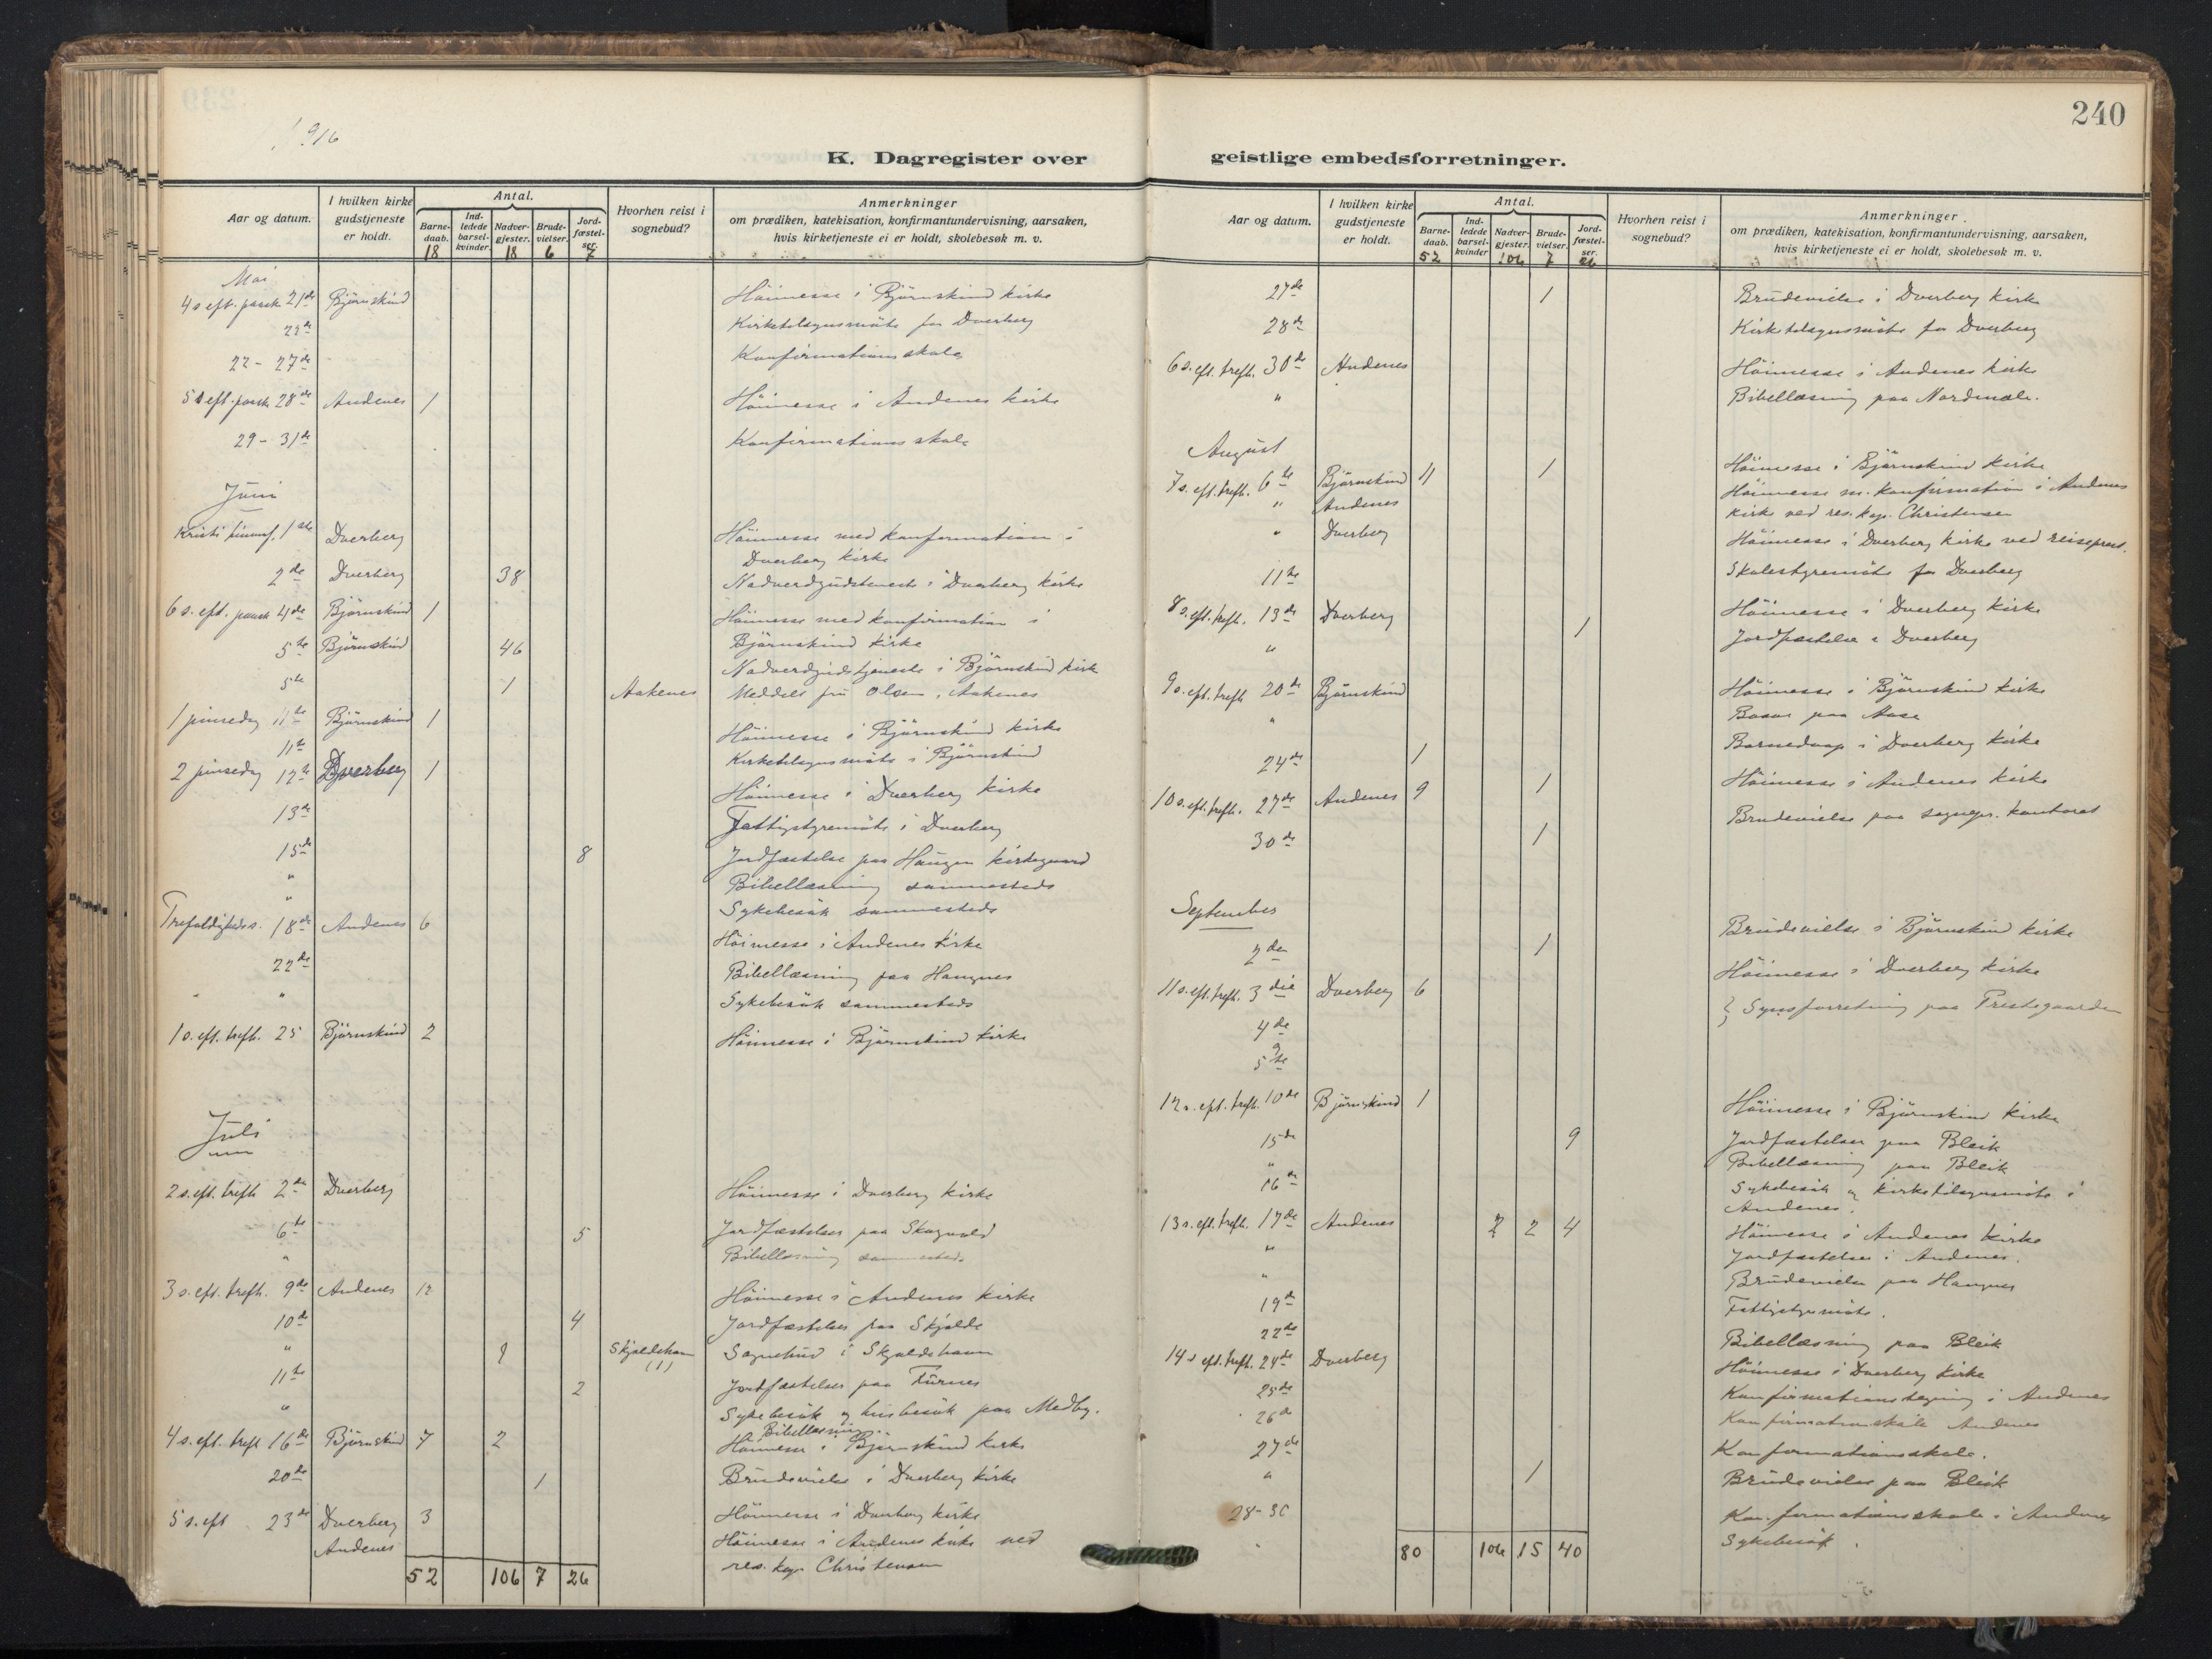 240
1916
K. Dagregister over geistlige embedsforretninger.
Aar og datum. | I hvilken kirke gudstjeneste er holdt. | Antal. | Barne-daab. | Ind-ledede barsel-kvinder. | Nadver-gjester. | Brude-vielser. | Jord-fæstel-ser. | Hvorhen reist i sognebud? | Anmerkninger om prædiken, katekisation, konfirmantundervisning, aarsaken, hvis kirketjeneste ei er holdt, skolebesøk m. v.
18 18 6 7
Mai
4 s eft. paask 21de Bjørnskind Høimesse i Bjørnskind kirke
22de Kirketilsynsmøte for Dverberg
22 - 27de Konfirmationsskole
5 s eft. paask 28de Andenes 1 Høimesse i Andenes kirke
29 - 31te Konfirmationsskole
Juni
Kristi himmf. 1ste Dverberg Høimesse med konfirmation i
Dverberg kirke
2de Dverberg 38 Nadverdgudstjeneste i Dverberg kirke
6 s. eft. paask 4de Bjørnskind 1 Høimesse med konfirmation i
Bjørnskind kirke
5te Bjørnskind 46 Nadverdgudstjeneste i Bjørnskind kirke
5te 1 Aakenes Meddelt fru Olsen, Aakenes
1 pinsedag 11te Bjørnskind 1 Høimesse i Bjørnskind kirke
11te Kirketilsynsmøte i Bjørnskind
2 pinsedag 12te Dverberg 1 Høimesse i Dverberg kirke
13de Fattigstyremøte i Dverberg
15de 8 Jordfæstelse paa Haugen kirkegaard
" Bibellæsning sammesteds
" Sykebesøk sammesteds
Trefoldigheds s. 18de Andenes 6 Høimesse i Andenes kirke
22de Bibellæsning paa Haugnes
" " Sykebesøk sammesteds
1 s. eft. trefh. 25 Bjørnskind 2 Høimesse i Bjørnskind kirke
Juli
2 s. eft. trefh 2de Dverberg Høimesse i Dverberg kirke
6te 5 Jordfæstelser paa Skogvold
" Bibellæsning sammesteds
3 s. eft. trefh. 9de Andenes 12 Høimesse i Andenes kirke
10de 4 Jordfæstelser paa Skjolde
" 1 Skjoldehavn (1) Sognebud i Skjoldehavn
11te 2 Jordfæstelser paa Furnes
" Sykebesøk og husbesøk paa Medby.
Bibellæsning
4 s. eft. trefh 16de Bjørnskind 7 2 Høimesse i Bjørnskind kirke
20de 1 Brudevielse i Dverberg kirke
5 s. eft 23de Dverberg 3 Høimesse i Dverberg kirke
Andenes Høimesse i Andenes kirke ved
res. kap Christensen
52 106 7 26
Aar og datum. | I hvilken kirke gudstjeneste er holdt. | Antal. | Barne-daab. | Ind-ledede barsel-kvinder | Nadver-gjester. | Brude-vielser. | Jord-fæstel-ser. | Hvorhen reist i sognebud? | Anmerkninger. om prædiken, katekisation, konfirmantundervisning, aarsaken, hvis kirketjeneste ei er holdt, skolebesøk m. v.
52 106 7 26
27de 1 Brudevielse i Dverberg kirke
28de Kirketilsynsmøte for Dverberg
6 s. eft. trefh. 30de Andenes Høimesse i Andenes kirke
" Bibellæsning paa Nordmæle.
August
7 s. eft. trefh. 6te Bjørnskind 11 1 Høimesse i Bjørnskind kirke
" Andenes Høimesse m. konfirmation i Andenes
kirke ved res. kap. Christensen
" Dverberg Høimesse i Dverberg kirke ved reiseprest.
11te Skolestyremøte for Dverberg
8 s. eft. trefh. 13de Dverberg Høimesse i Dverberg kirke
" 1 Jordfæstelse i Dverberg
9 s. eft. trefh 20de Bjørnskind Høimesse i Bjørnskind kirke
" Basar paa Aase
24de 1 Barnedaap i Dverberg kirke
10 s. eft. trefh. 27de Andenes 9 1 Høimesse i Andenes kirke
30de 1 Brudevielse paa sognepr. kontoret
September
2den 1 Brudevielse i Bjørnskind kirke
11 s. eft. trefh. 3die Dverberg 6 Høimesse i Dverberg kirke
4de } Synsforretning paa Prestegaarden
5te
12 s. eft. trefh. 10de Bjørnskind 1 Høimesse i Bjørnskind kirke
15de 9 Jordfæstelser paa Bleik
" Bibellæsning paa Bleik
16de Sykebesøk og kirketilsynsmøte i
Andenes.
13 s. eft. trefh. 17de Andenes 2 2 4 Høimesse i Andenes kirke
" Jordfæstelser i Andenes.
" Brudevielse paa Haugnes
19de Fattigstyremøte.
22de Bibellæsning paa Bleik
14 s eft. trefh. 24de Dverberg Høimesse i Dverberg kirke
25de Konfirmationstegning i Andenes
26de Konfirmationsskole Andenes
27de Konfirmationsskole.
" 1 Brudevielse paa Bleik
28 - 30 Konfirmationsskole i Andenes
" Sykebesøk.
80 106 15 40